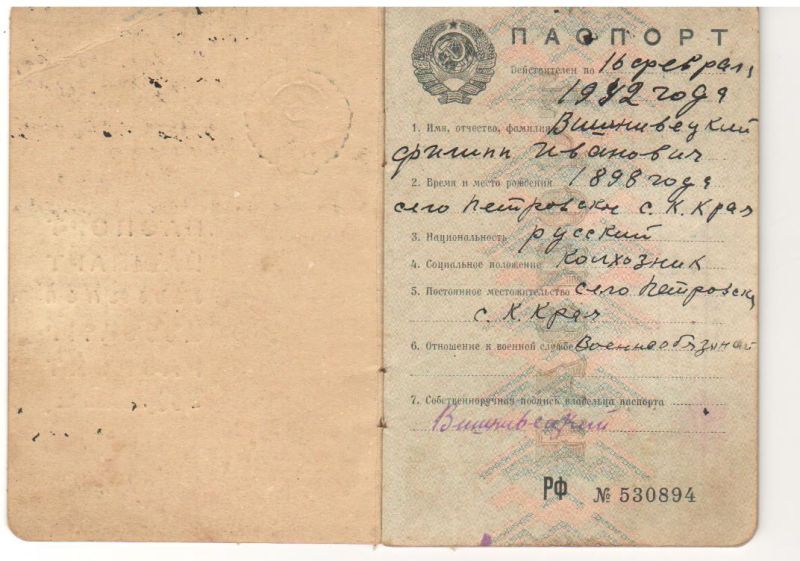 ПАСПОРТ
Действителен по 16 феврал,
1942 года
1. Имя, отчество, фамилия Вишнивецкий
Филипп Иванович
2. Время и место рождения 1898 года
село Петровски с. К. Края
3. Национальность русский
4. Социальное положение Колхозник
5. Постоянное местожительство село Петровск
с. К. Края
6. Отношение к военной службе Военнообязаной
7. Собственноручная подпись владельца паспорта
Вишнивецкий
РФ № 530894